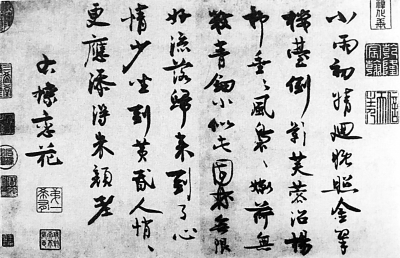 小雨初晴迴晚照金翠
樓臺倒影芙蓉沼楊
柳垂〻風裊〻嫩荷無
數青鈿小似此園林無限
好流落歸來到了心
情少坐到黃昏人悄〻
更應添得朱顏老
右蝶戀花